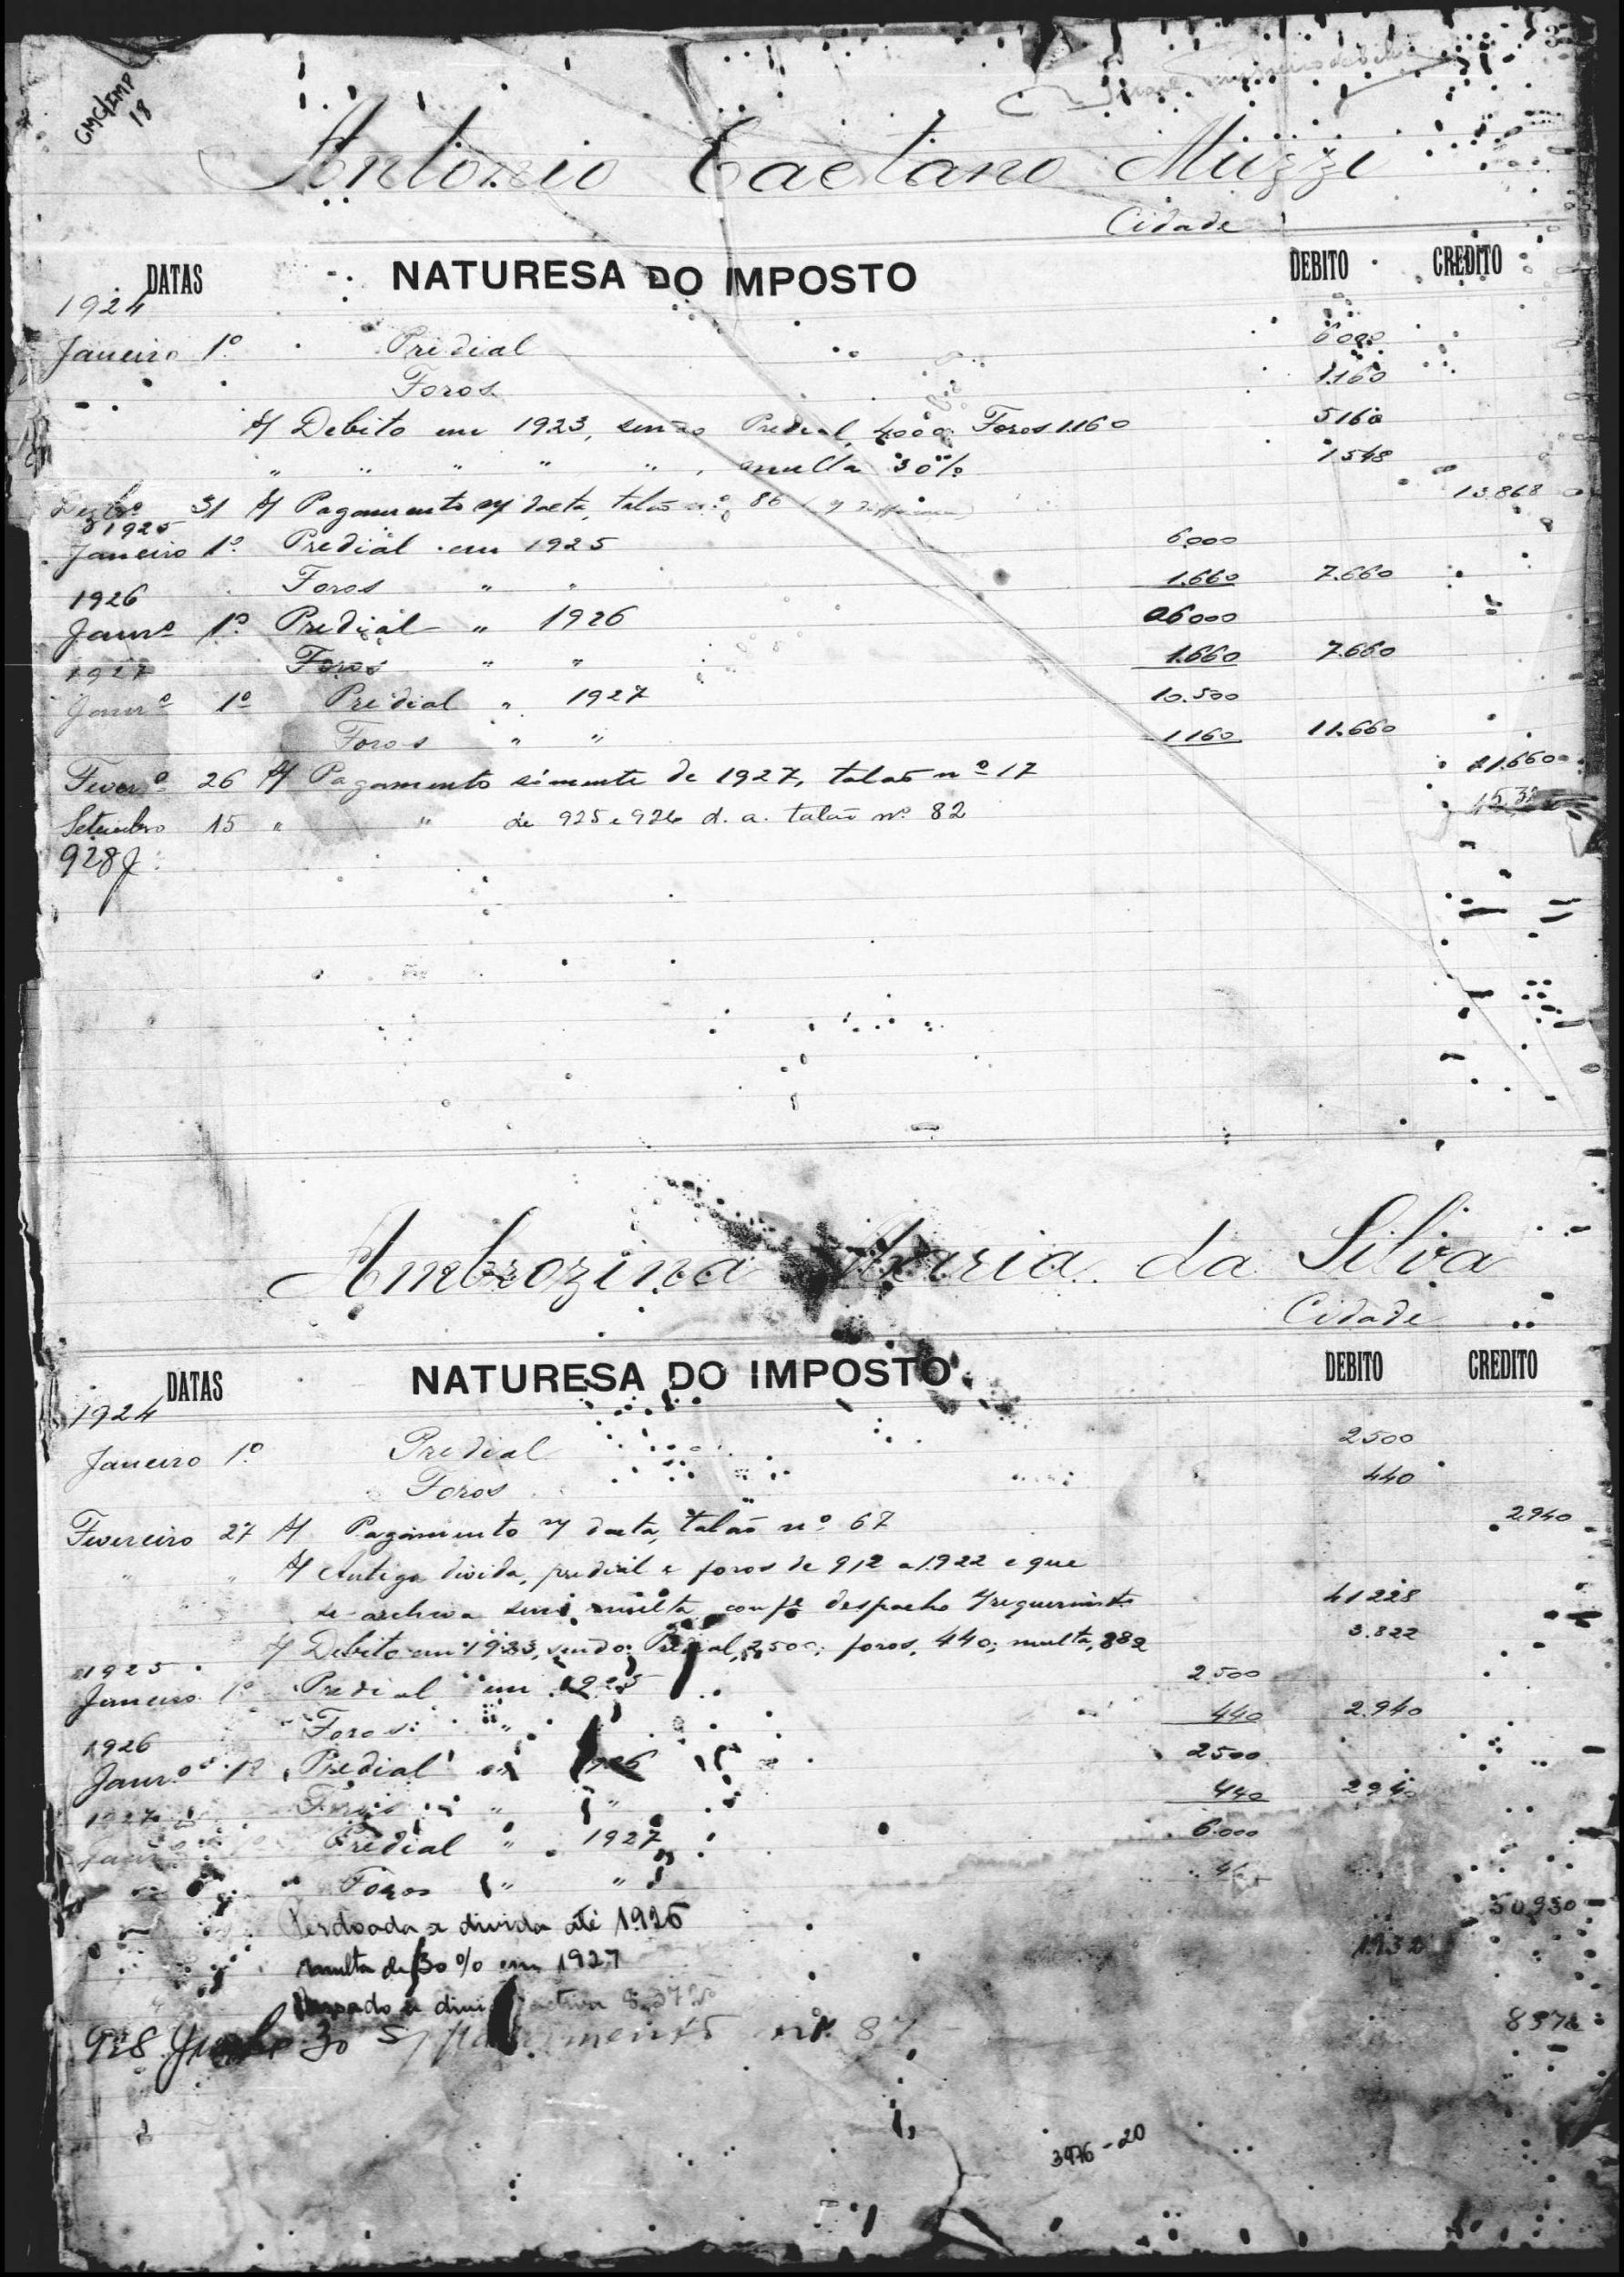 CMC/IMP
18
Antonio Caetano Muzzi
Cidade
DATAS NATURESA DO IMPOSTO DEBITO CREDITO
1924
Janeiro 1º Predial 6000
Foros 1.160
S/ Debito em 1923, sendo Predial, 4000, Foros 1160 5160
" " " " " , multa 30% 1548
31 S/ Pagamento n/ dacta, talão nº 86 13.868
1925
Janeiro 1º Predial em 1925 6.000
Foros " " 1.660 7.660
1926
Janrº 1º Predial " 1926 6000
Foros " " 1.660 7.660
1927
Janrº 1º Predial " 1927 10.500
Foros " " 1160 11.660
Feverº 26 S/ Pagamento sómente de 1927, talão nº 17 11.660
Setembro 15 " " de 925 e 926 d. a. talão nº 82
928
Ambrozina Maria da Silva
Cidade
DATAS NATURESA DO IMPOSTO DEBITO CREDITO
1924
Janeiro 1º Predial 2500
Foros 440
Fevereiro 27 S/ Pagamento n/ dacta, talão nº 67 2940
" " S/ Antiga divida, predial e foros de 912 a 1922 e que
se archiva sem multa, despacho requerimto 41228
S/ Debito em 1923, sendo: Predial, 2,500; foros, 440; multa, 882 3.822
1925
Janeiro 1º Predial em 1925 2.500
Foros " 440 2.940
1926
Janrº 1º Predial " 1926 2500
Foros " " 440 2940
1927
Janrº 1º Predial " 1927 6.000
Foros " "
Perdoada a divida até 1926 50930
multa de 30% em 1927 1932
Passado a divida activa 8.372
928 Junho 30 S/ pagamento nº 87 8372
3976-20